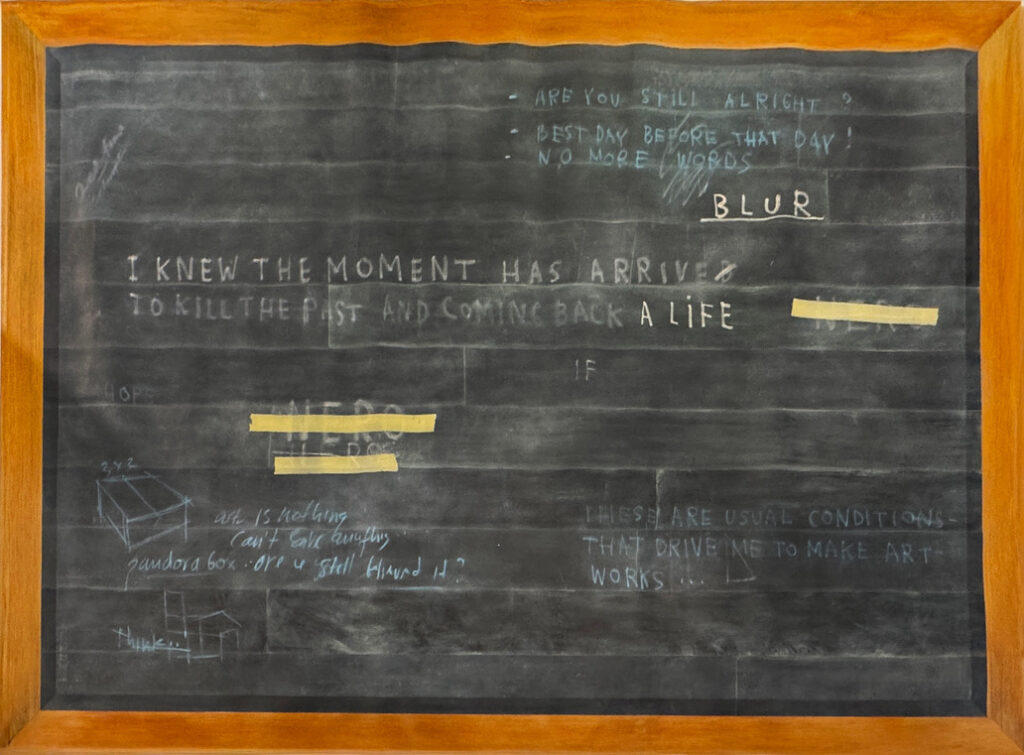 - ARE YOU STILL ALRIGHT ?
- BEST DAY BEFORE THAT DAY !
- NO MORE WORDS
BLUR
I KNEW THE MOMENT HAS ARRIVED
TO KILL THE PAST AND COMING BACK A LiFE
NERO
IF
HOPE
NERO
HERO
art is nothing
can't save anything
pandora box . are u still behind it?
THESE ARE USUAL CONDITIONS
THAT DRIVE ME TO MAKE ART
WORKS ...
think...